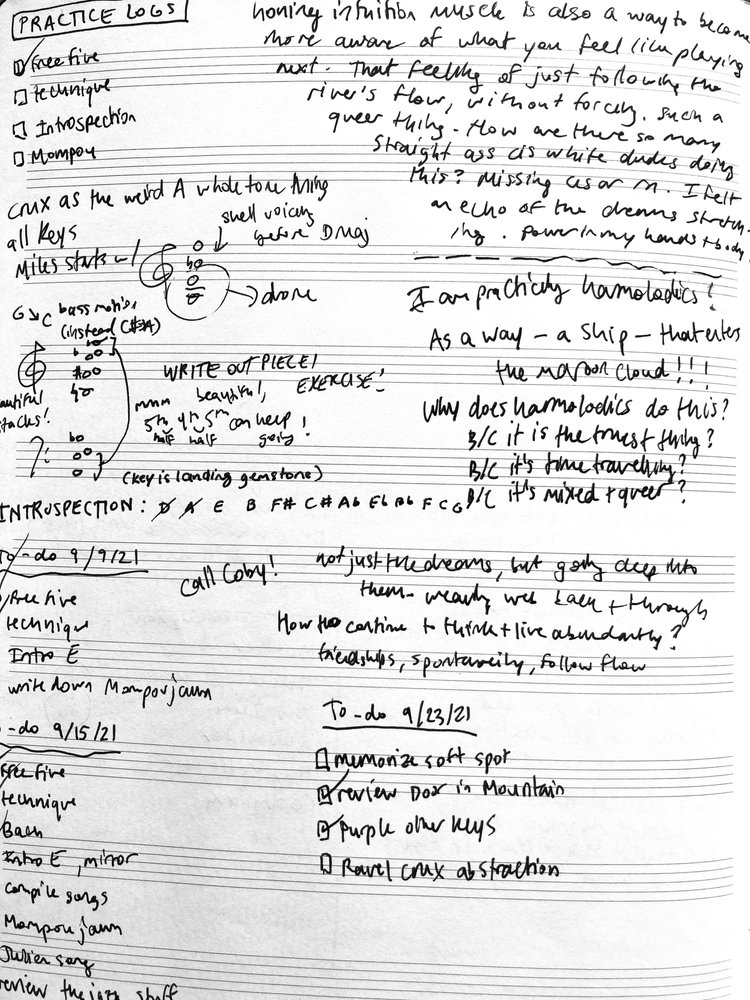 PRACTICE LOGS
Free five
technique
Introspection
Mompou
honing intuition muscle is also a way to become
more aware of what you feel like playing
next. That feeling of just following the
river's flow, without forcing. Such a
queer thing. How are there so many
straight ass cis white dudes doing
this? Missing or M. I felt
an echo of the dreams stretch-
ing. Power in my hands + body
crux as the weird A whole tone thing
all keys
Miles starts w/
shell voicing
before D maj
drone
I am practicing harmolodics!
As a way – a ship – that enters
the maroon cloud!!!
Why does harmolodics do this?
B/C it is the truest thing?
B/C it's time travelling?
B/C it's mixed + queer?
G C bass motion
(instead C#→A)
WRITE OUT PIECE!
EXERCISE!
mmm beautiful,
5th 4th 5th can keep
half half going!
beautiful
stacks!
(key is landing gemstone)
INTROSPECTION: D A E B F# C# Ab Eb Bb F C G
To-do 9/9/21
free five
technique
Intro E
write down Mompou jawn
call Coby!
not just the dreams, but going deep into
them – weaving web back + through
How to continue to think + live abundantly?
friendships, spontaneity, follow flow
To-do 9/15/21
Free five
technique
Bach
Intro E, mirror
compile songs
Mompou jawn
Julian song
review the jazz stuff
To-do 9/23/21
memorize soft spot
review Door in Mountain
Purple other keys
Ravel crux abstraction